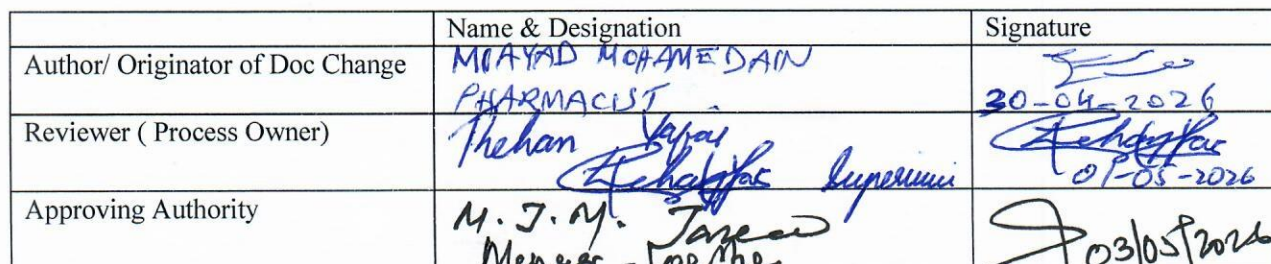 Name & Designation Signature
Author/ Originator of Doc Change MOAYAD MOHAMEDAIN
PHARMACIST 30-04-2026
Reviewer ( Process Owner) Thehan
01-05-2026
Approving Authority M. J. M.
03/05/2026